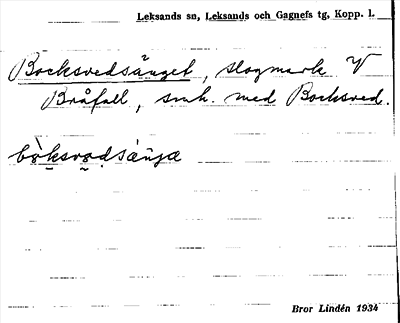 Leksands sn, Leksands och Gagnefs tg, Kopp. l.
Bocksvedsänget, slogmark V
Bråfall, smh. med Bocksved.
Bror Lindén 1934